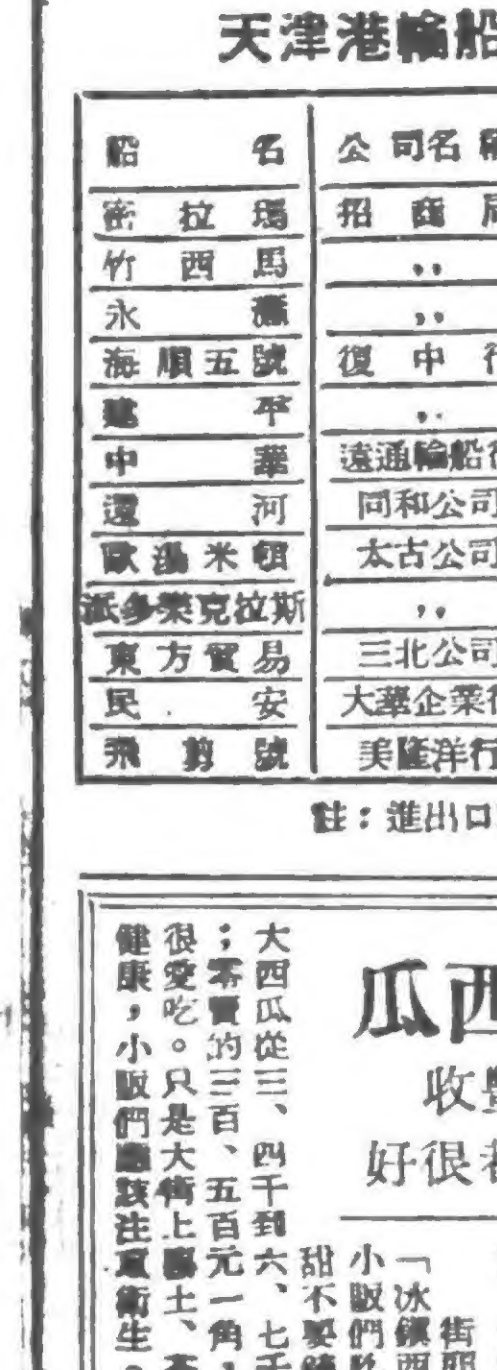 天津港輪船
船名 公司名稱
密拉瑪 招商局
竹西馬 ,,
永灝 ,,
海順五號 復中行
建平 ,,
中華 遠通輪船行
還河 同和公司
歐湯米頓 太古公司
派多樂克拉斯 ,,
東方貿易 三北公司
民安 大華企業行
飛剪號 美隆洋行
註：進出口
瓜西
收豐
好很
街
「冰鎮西
小販們
甜不要錢
大西瓜從三、四千到六、七千
；零賣的三百、五百元一角，
很愛吃。只是大街上塵土、
健康，小販們應該注意衛生。